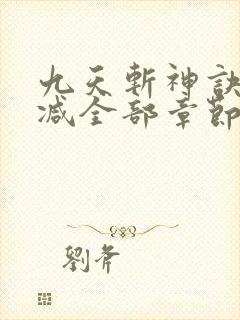 九天斬神訣
减全部章節
劉斧